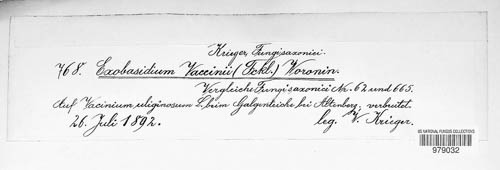 Krieger, Fungi saxonici.
768. Exobasidium Vaccinii (Fckl.) Woronin.
Vergleiche Fungi saxonici Nr. 62 und 665.
Auf Vacinium uliginosum L. beim Galgenteiche bei Altenberg, verbreitet.
26. Juli 1892. leg. W. Krieger.
US NATIONAL FUNGUS COLLECTIONS
979032